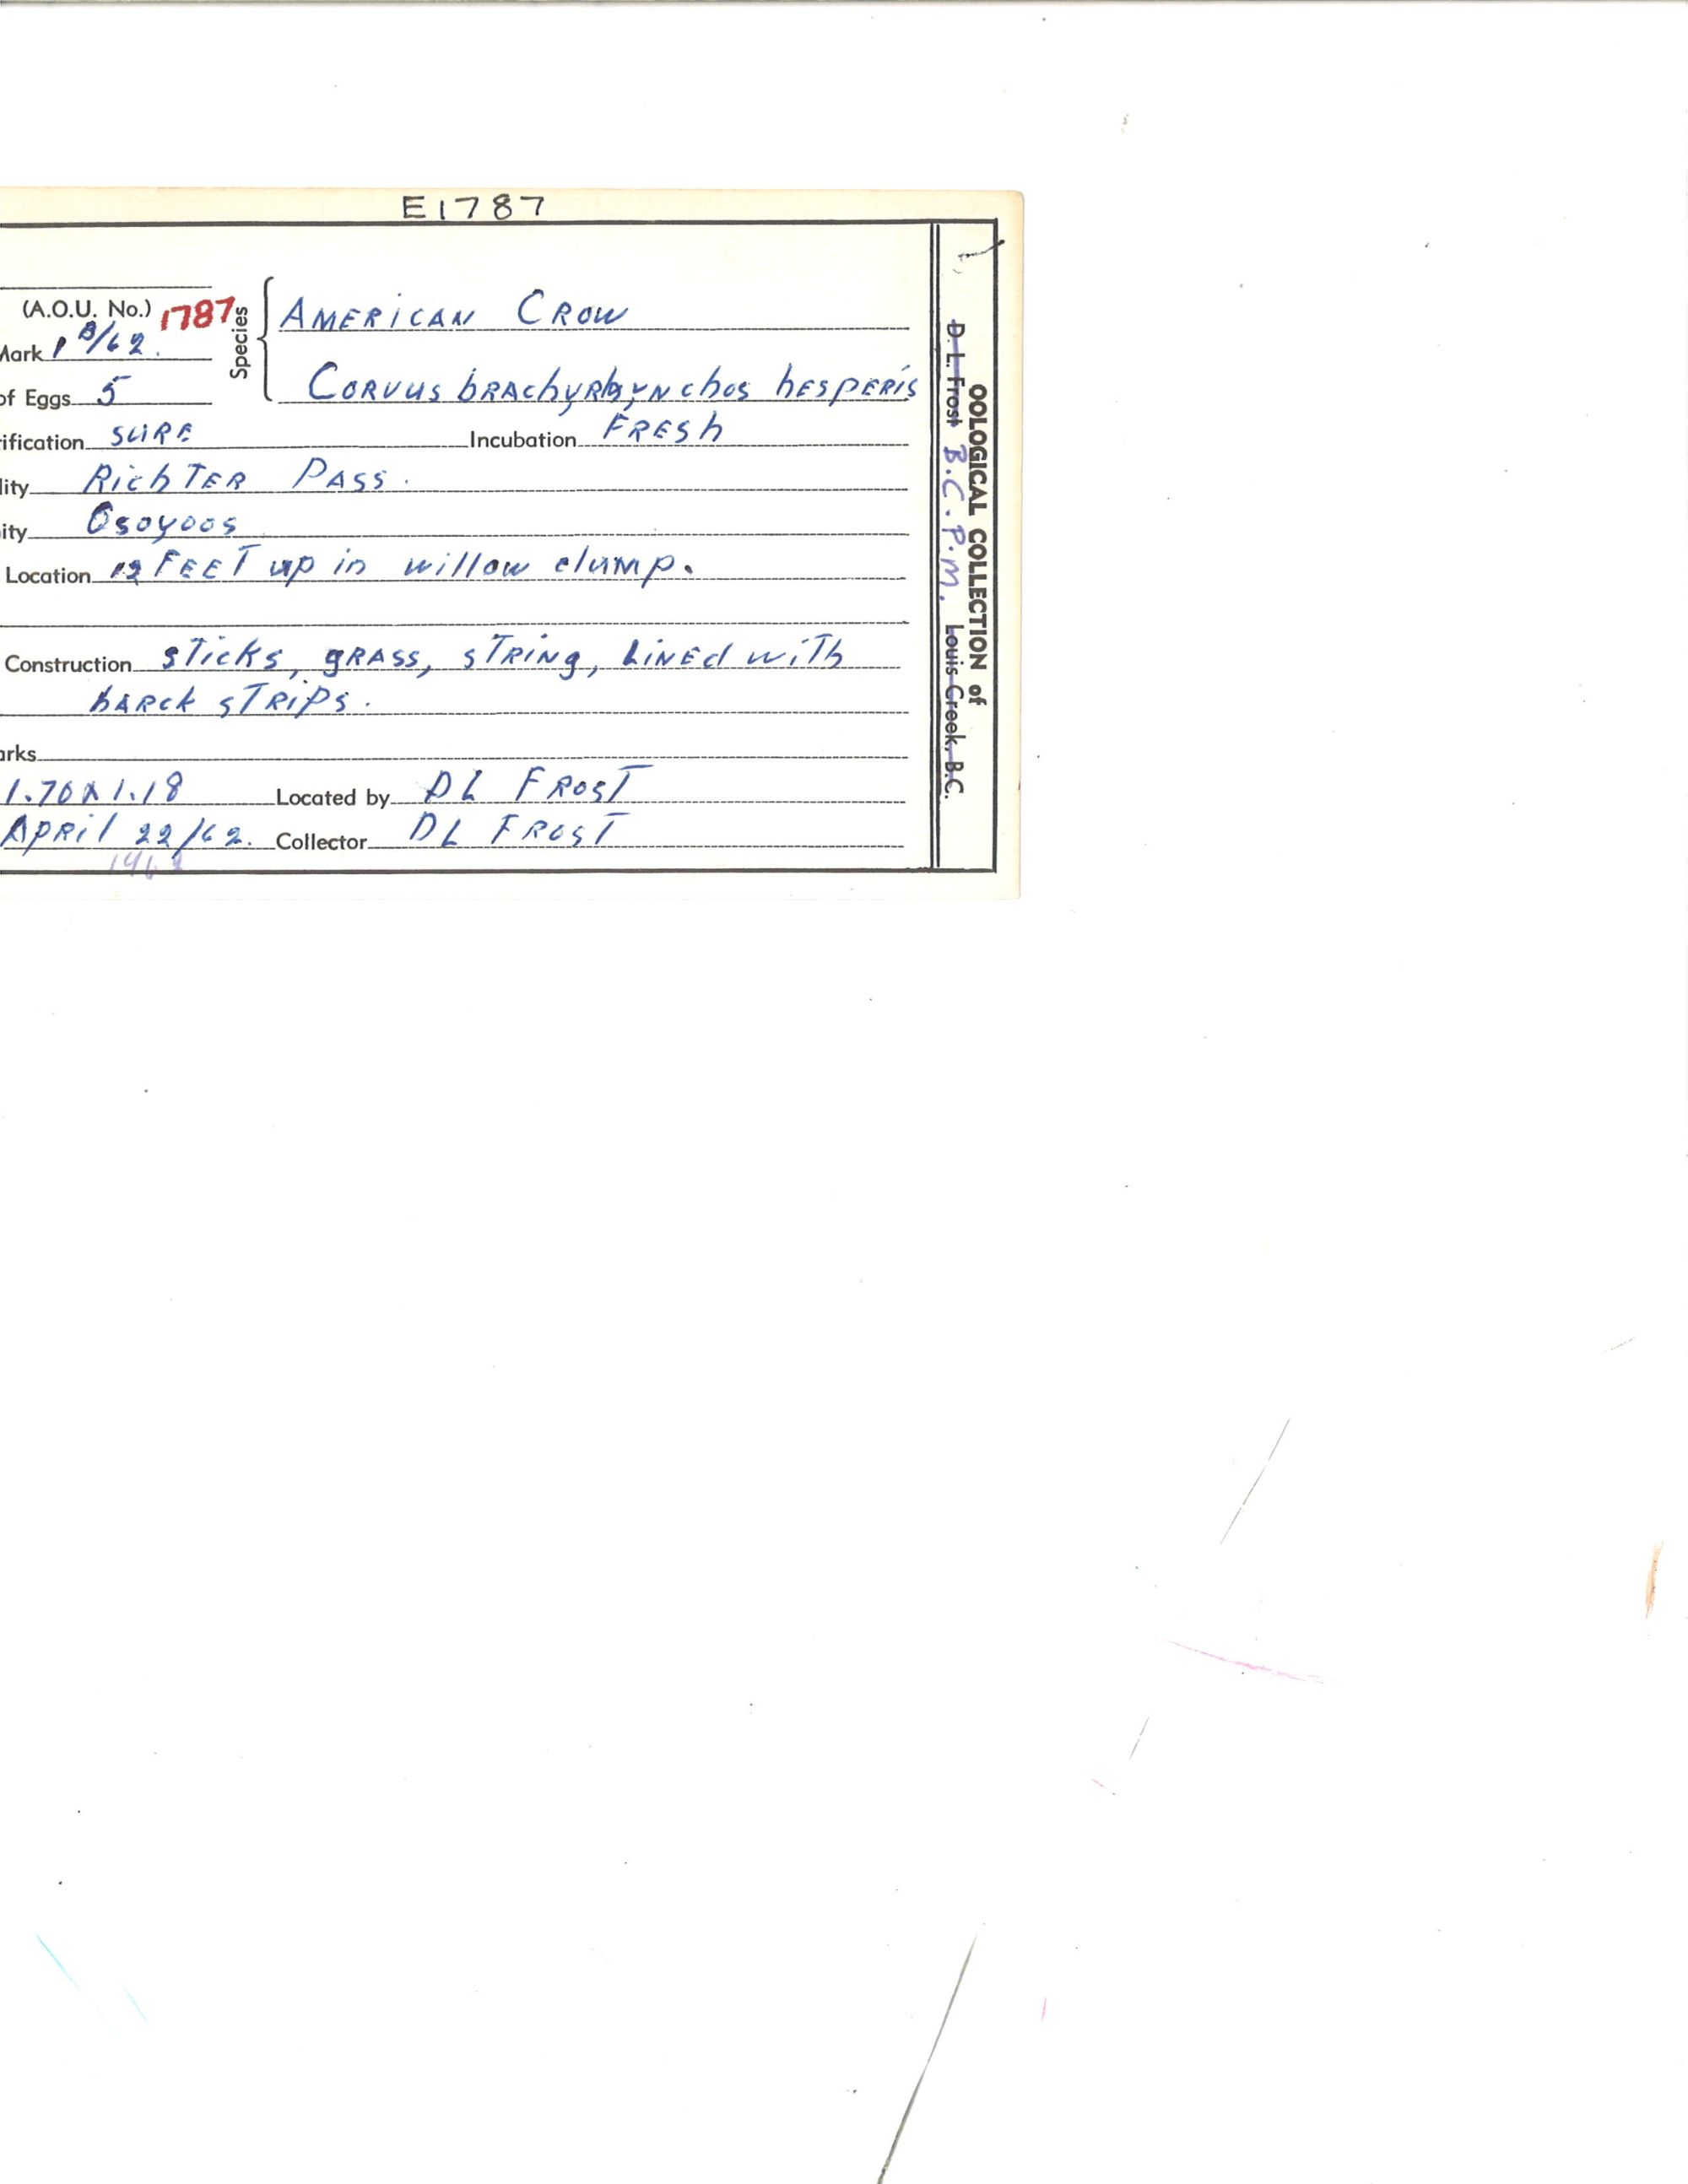 E1787
(A.O.U. No.) 1787
Species { AMERICAN CROW
Mark 1 B/62.
CORVUS bRAChyRhyNchos hESPERIS
of Eggs 5
ification SURE Incubation FRESh
lity RichTER PASS.
ity Osoyoos
Location 12 FEET up in willow clump.
Construction sTicks, gRASS, sTRiNg, LiNEd wiTh
bARck sTRiPs.
arks
1.70 X 1.18 Located by DL FROST
APRil 22/62. Collector DL FROST
1962
OOLOGICAL COLLECTION of
D. L. Frost B.C.P.M. Louis Creek, B.C.